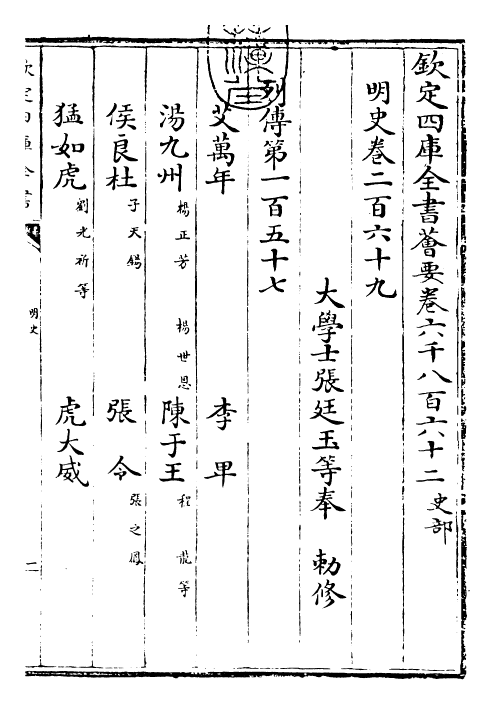 欽定四庫全書薈要卷六千八百六十二 史部
明史卷二百六十九
大學士張廷玉等奉 勅修
列傳第一百五十七
艾萬年 李卑
湯九州 楊正芳 楊世恩 陳于王 程龍等
侯良柱 子天錫 張令 張之鳳
猛如虎 劉光祚等 虎大威
明史